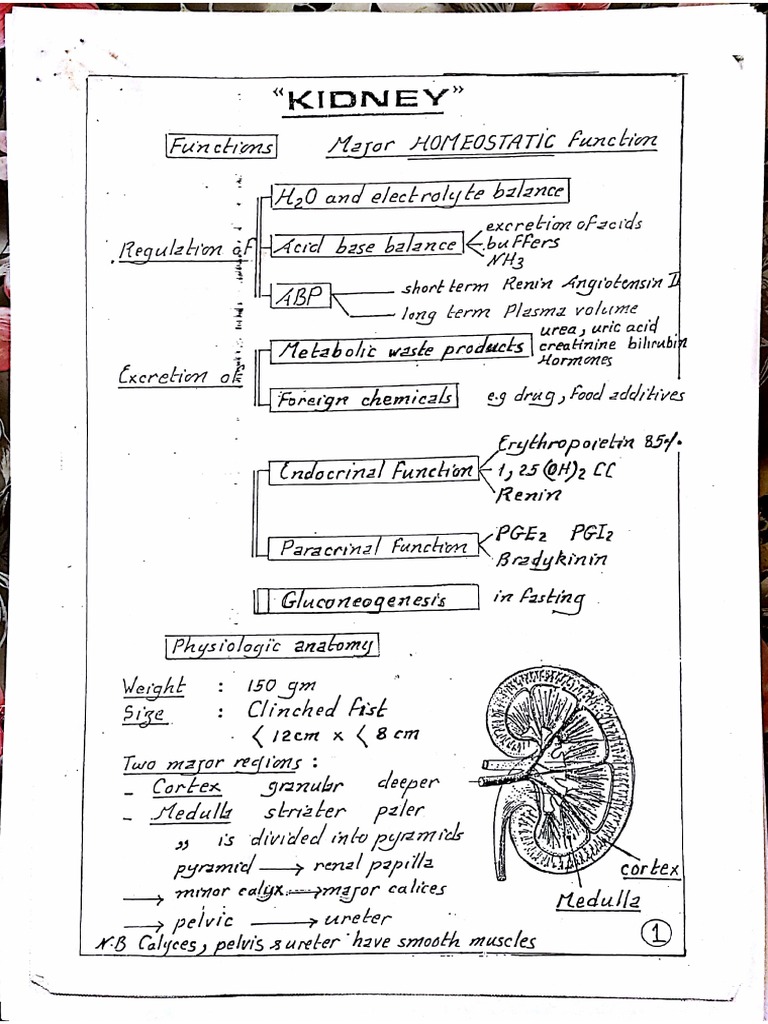 "KIDNEY"
Functions Major HOMEOSTATIC function
H2O and electrolyte balance
Regulation of Acid base balance excretion of acids
buffers
NH3
ABP short term Renin Angiotensin II
long term Plasma volume
Metabolic waste products urea, uric acid
creatinine bilirubin
Hormones
Excretion of
Foreign chemicals e.g drug, food additives
Endocrinal Function Erythropoietin 85%
1,25 (OH)2 CC
Renin
Paracrinal Function PGE2 PGI2
Bradykinin
Gluconeogenesis in fasting
Physiologic anatomy
Weight : 150 gm
Size : Clinched fist
< 12cm x < 8 cm
Two major regions :
- Cortex granular deeper
- Medulla striater paler
„ is divided into pyramids
pyramid → renal papilla
→ minor calyx → major calices
→ pelvic → ureter
N.B Calyces, pelvis & ureter have smooth muscles
cortex
Medulla
1